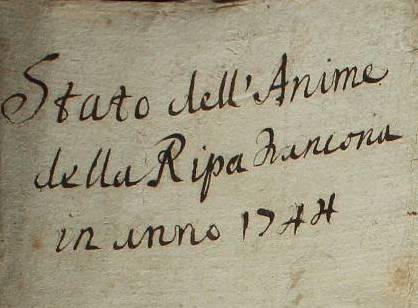 Stato dell'Anime
della Ripa Hancona
in anno 1744